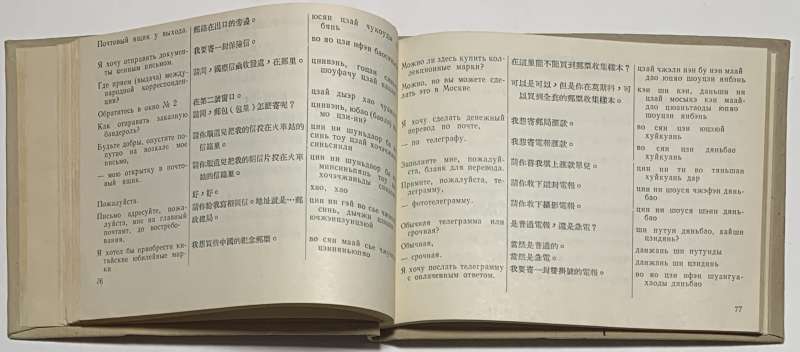 Почтовый ящик у выхода.
郵箱在出口的旁邊。
юсян цзай чукоуды
бянь
Я хочу отправить докумен-
ты ценным письмом.
我要寄一封保險信。
во яо цзи ифэн баосянь
Где прием (выдача) между-
народной корреспонден-
ции?
請問,國際信函收發處,在那里。
цинвэнь, гоцзи
шоуфачу цзай
Обратитесь в окно № 2
在第二號窗口。
цзай дыэр хао чуан
Как отправить заказную
бандероль?
請問,郵包(包里)怎麽寄呢?
цинвэнь, юбао (баого)
мо цзи-ни?
Будьте добры, опустите по-
путно на вокзале мое
письмо,
請你順道兒把我的信投在火車站的
信箱里。
цин ни шуньдаор ба
синь тоу цзай хочэ
синьсянли
— мою открытку в почто-
вый ящик.
請你順道兒把我的明信片投在火車
站的信箱里。
цин ни шуньдаор ба
минсиньпянь тоу
хочэчжаньды
Пожалуйста.
好,好。
хао, хао
Письмо адресуйте, пожа-
луйста, мне на главный
почтамт, до востребо-
вания.
請你給我寫信。地址就是…郵
政總局。
цин ни гэй во се
синь, дычжи
ючжэнцзунцзюй
Я хотел бы приобрести ки-
тайские юбилейные мар-
ки
我想買些中國的紀念郵票。
во сян маай сье чжунго
цзинияньюпяо
76
Можно ли здесь купить кол-
лекционные марки?
在這里能不能買到郵票收集樣本?
цзай чжэли нэн бу нэн маай
дао юпяо шоуцзи янбэнь
Можно, но вы можете сде-
лать это в Москве
可以是可以,但是你在莫斯科,可
以買到全套的郵票收集樣本。
кэи ши кэи, даньши ни
цзай мосыкэ кэи маай-
дао цюаньтаоды юпяо
шоуцзи янбэнь
Я хочу сделать денежный
перевод по почте,
我想寄郵局滙款。
во сян цзи юцзюй
хуйкуань
— по телеграфу.
我想寄電報滙款。
во сян цзи дяньбао
хуйкуань
Заполните мне, пожалуй-
ста, бланк для перевода.
請你替我填上滙款單兒。
цин ни ти во тяньшан
хуйкуань дар
Примите, пожалуйста, те-
леграмму,
請你收下這封電報。
цин ни шоуся чжэфэн дянь-
бао
— фототелеграмму.
請你收下攝影電報。
цин ни шоуся шэин дянь-
бао
Обычная телеграмма или
срочная?
是普通電報,還是急電?
ши путун дяньбао, хайши
цзидянь?
Обычная,
當然是普通的。
данжань ши путунды
— срочная.
當然是急電。
данжань ши цзидянь
Я хочу послать телеграмму
с оплаченным ответом.
我要寄一封雙掛號的電報。
во яо цзи ифэн шуангуа-
хаоды дяньбао
77